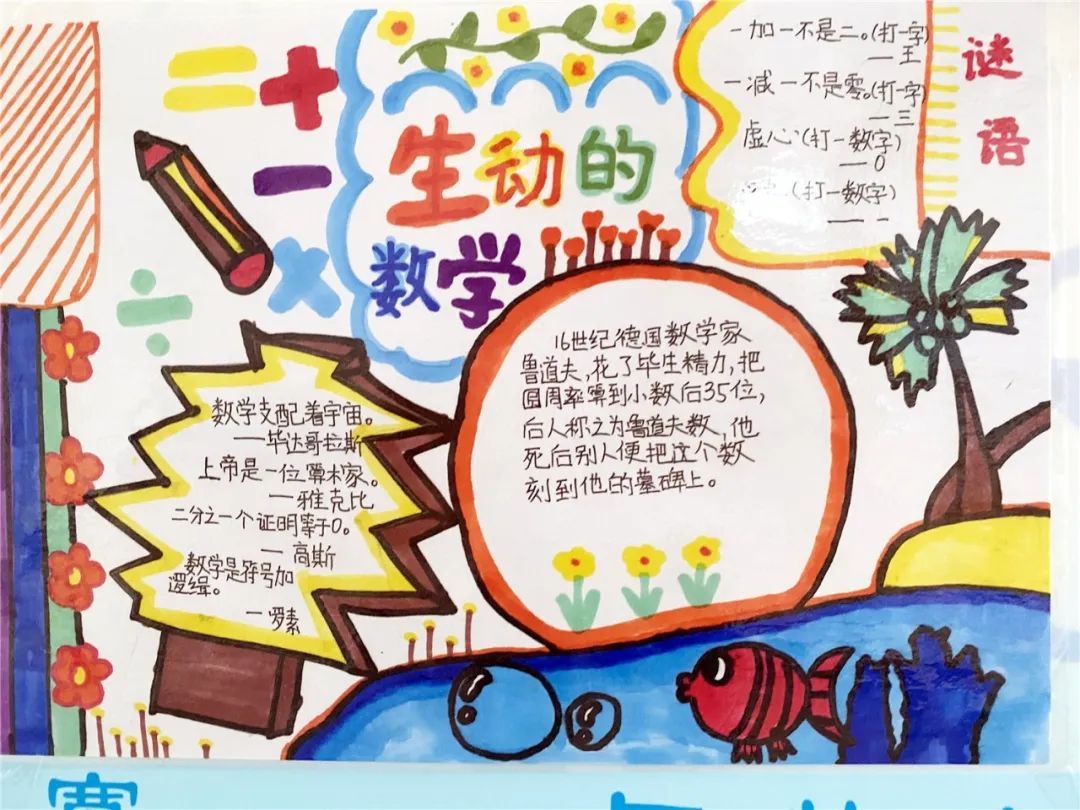 生动的
数学
一加一不是二。(打一字)
— 王
一减一不是零。(打一字)
— 三
虚心(打一数字)
— 0
(打一数字)
— 一
谜
语
16世纪德国数学家
鲁道夫,花了毕生精力,把
圆周率算到小数后35位,
后人称之为鲁道夫数,他
死后别人便把这个数
刻到他的墓碑上。
数学支配着宇宙。
——毕达哥拉斯
上帝是一位算术家。
—雅克比
二分之一个证明等于0。
— 高斯
数学是符号加
逻缉。
— 罗素